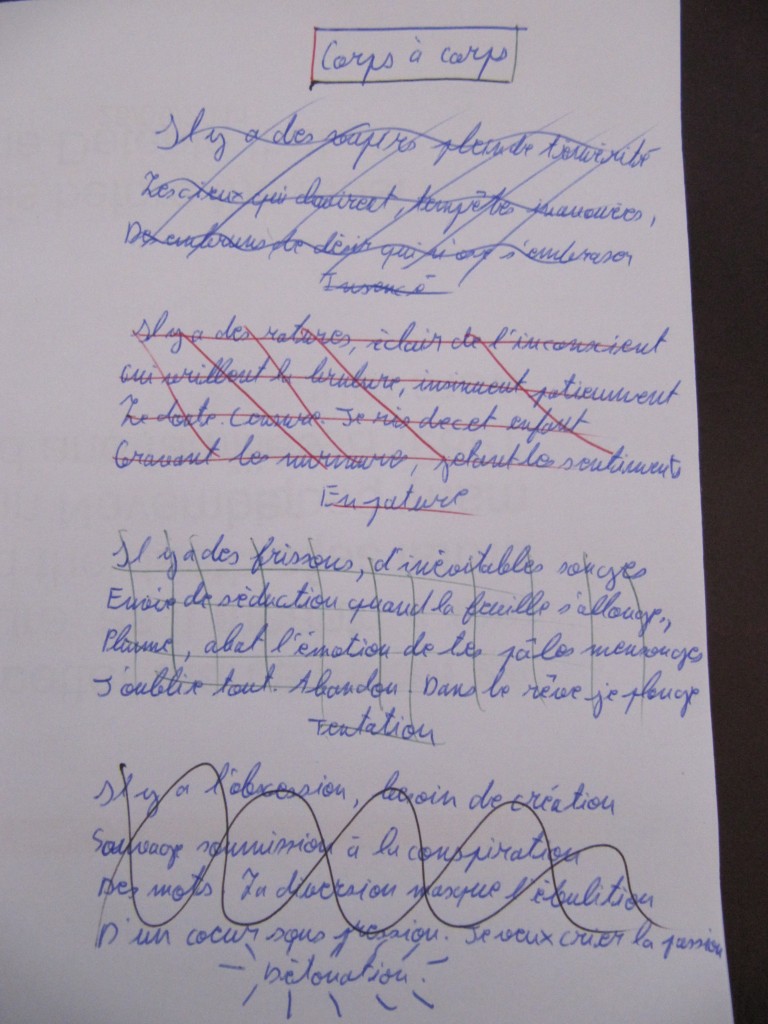 Corps à corps
Il y a des
Les cieux qui, tempêtes inavouées,
de désir qui n'ose s'embraser
Insensé
Il y a des ratures, éclair de l'inconscient
Qui la brulure, insinuent patiemment
Le doute. Censure. Je ris de cet enfant
Gravant le murmure, jetant les sentiments
En pature
Il y a des frissons, d'inévitables songes
Envie de séduction quand la feuille s'allonge,
Plume, abat l'émotion de tes pâles mensonges
J'oublie tout. Abandon. Dans le rêve je plonge
Tentation
Il y a l'obsession, besoin de création
Sauvage soumission à la conspiration
Des mots. La diversion masque l'ébulition
D'un coeur sous pression. Je veux crier la passion
Détonation.